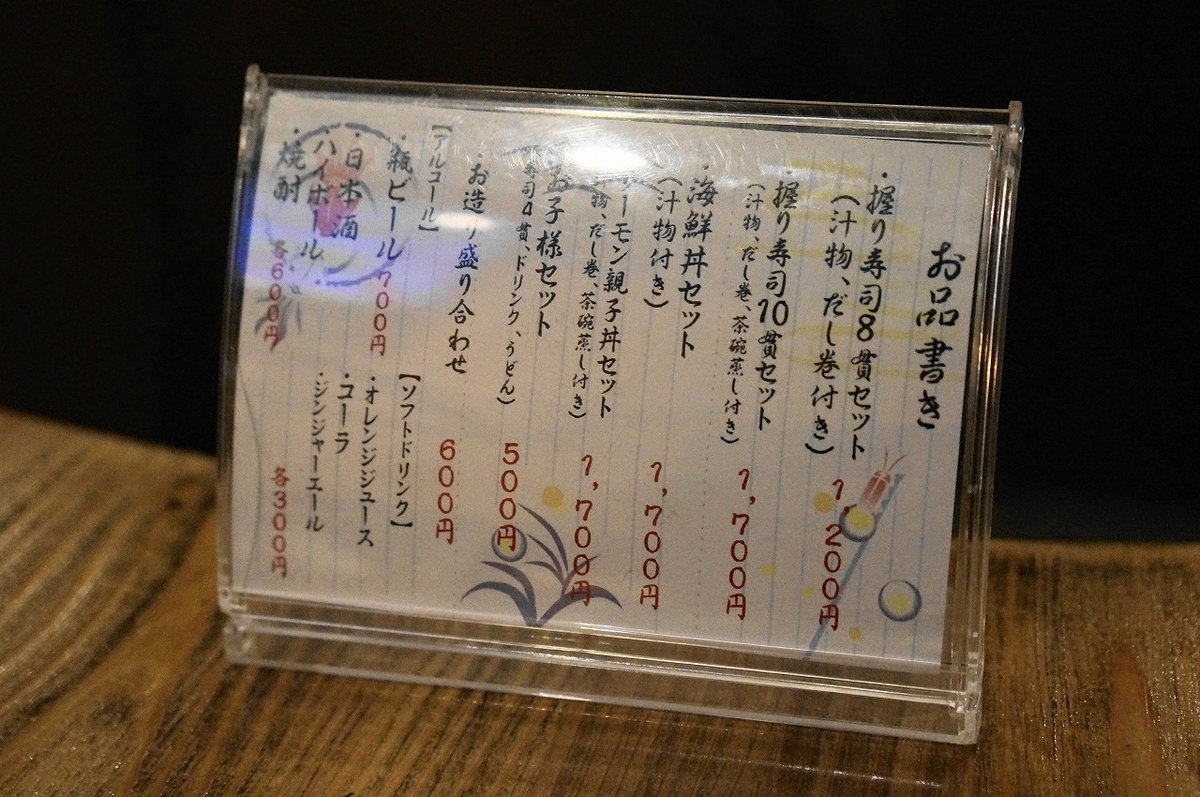 お品書き
・握り寿司8貫セット
(汁物、だし巻付き)
1,200円
・握り寿司10貫セット
(汁物、だし巻、茶碗蒸し付き)
1,700円
・海鮮丼セット
(汁物付き)
1,700円
ーモン親子丼セット
物、だし巻、茶碗蒸し付き)
1,700円
お子様セット
寿司4貫、ドリンク、うどん)
500円
・お造り盛り合わせ
600円
【アルコール】
・瓶ビール 700円
・日本酒
・ハイボール
・焼酎
各600円
【ソフトドリンク】
・オレンジジュース
・コーラ
・ジンジャーエール
各300円